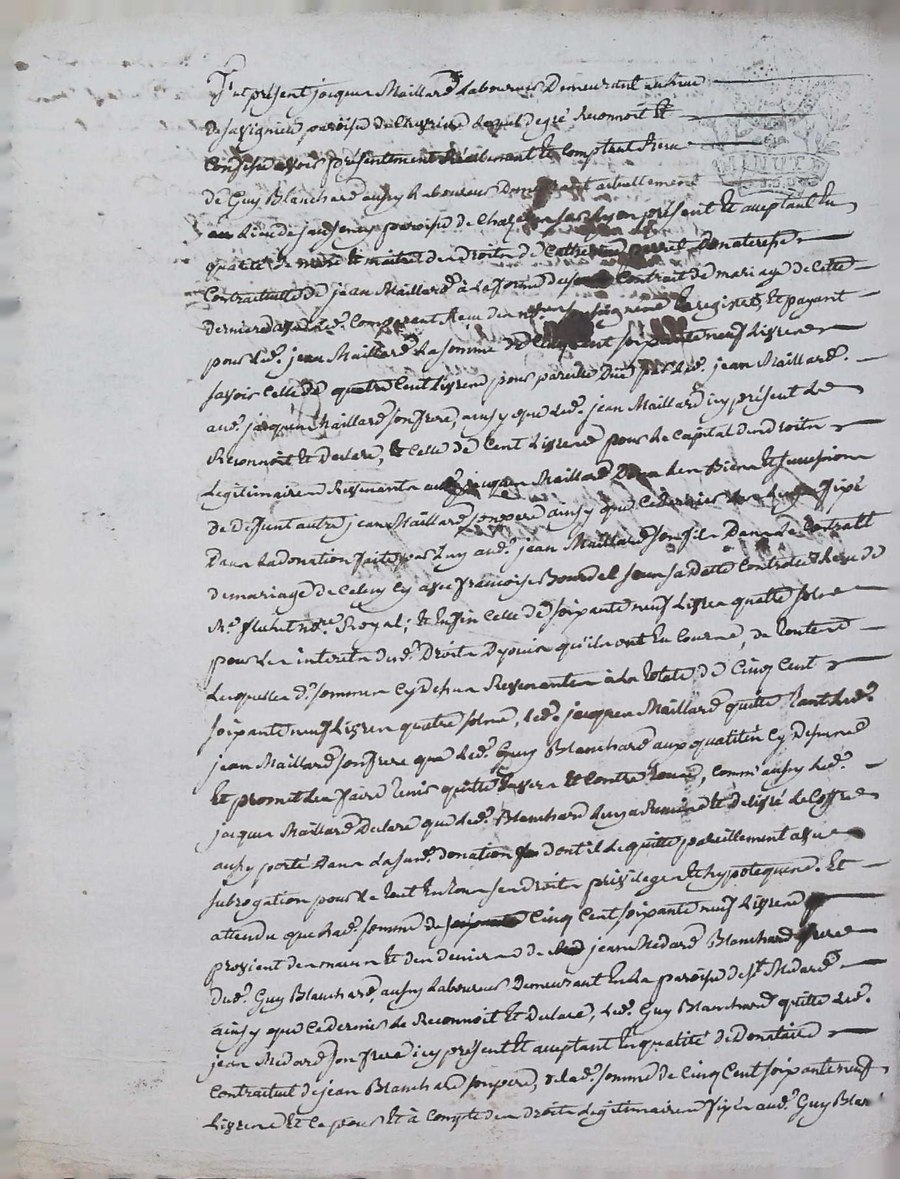 MINUTE
Fut présent jacques Maillard Laboureur Demeurant au lieu
de savignieu paroisse de Lequel de gré Reconnoit Et
Confesse avoir présentement Réellement Et Comptant Receu
de Guy Blanchard aussy Laboureur Demeurant actuellement
au Lieu de paroisse de présent Et acceptant En
qualité de mari Et maitre des Droits de Catherine Donateresse
Contractuelle de jean Maillard à La forme de son Contrait de mariage de Cette
Derniere avec Led. Comparent Reçu du no.re soussigné Enregistré, Et payant
pour Led. jean Maillard La somme de Cinq Cent soixante neuf Livres
savoir Celle de quatre Cent Livres pour pareille Duë par Led. jean Maillard
aud. jacques Maillard son frere, ainsy que Led. jean Maillard icy présent Le
Reconnoit Et Declare, Et Celle de Cent Livres pour Le Capital des droits
Legitimaires Restants aud. jacques Maillard Dans Les Biens Et succession
de Deffunt autre jean Maillard son pere ainsy que Ce dernier Les Luy a fixé
Dans La donation faite par Luy aud. jean Maillard son fils Dans Le Contratt
de mariage de Celuy Cy avec francoise Bourdel sous sa Datte Controllé Receu de
M.e no.re Royal; Et Enfin Celle de soixante neuf Livres quatre sols
pour Les interets dud. Droits Depuis qu'ils ont Eu Course, de
Lesquelles d. sommes Cy Dessus Revenantes à La Totale de Cinq Cent
soixante neuf Livres quatre sols, Led. jacques Maillard quitte Tant Led.
jean Maillard son frere que Led. Guy Blanchard aux qualités Cy Dessus
Et promet Les faire Tenir quitte Envers Et Contre Tous, Comm'aussy Led.
jacques Maillard Declare que Led. Blanchard Luy a Remis Et délivré Le Coffre
aussy porté Dans La sus.d. donation dont il Le quitte pareillement avec
subrogation pour Le Tout En Tous ses Droits privileges Et hypoteques. Et
attendu que Lad. somme de Cinq Cent soixante neuf Livres
provient des mains Et des deniers de jean Médard Blanchard frere
Dud. Guy Blanchard, aussy Laboureur Demeurant En La paroisse de S.t Médard
ainsy que Ce dernier Le Reconnoit Et Declare, Led. Guy Blanchard quitte Led.
jean Médard son frere icy présent Et acceptant En qualité de Donataire
Contractuel de jean Blanchard son pere, de Lad. somme de Cinq Cent soixante neuf
Livres Et Ce pour Et à Compte des droits Legitimaires fixés aud. Guy Blan